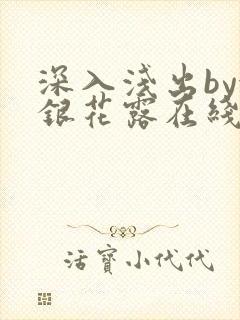 深入浅出by
銀花露在綫
活寶小代代